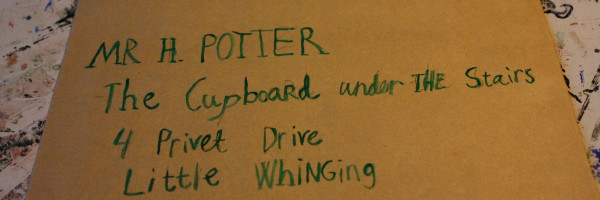 MR H. POTTER
The Cupboard under THE Stairs
4 Privet Drive
Little WhiNGing